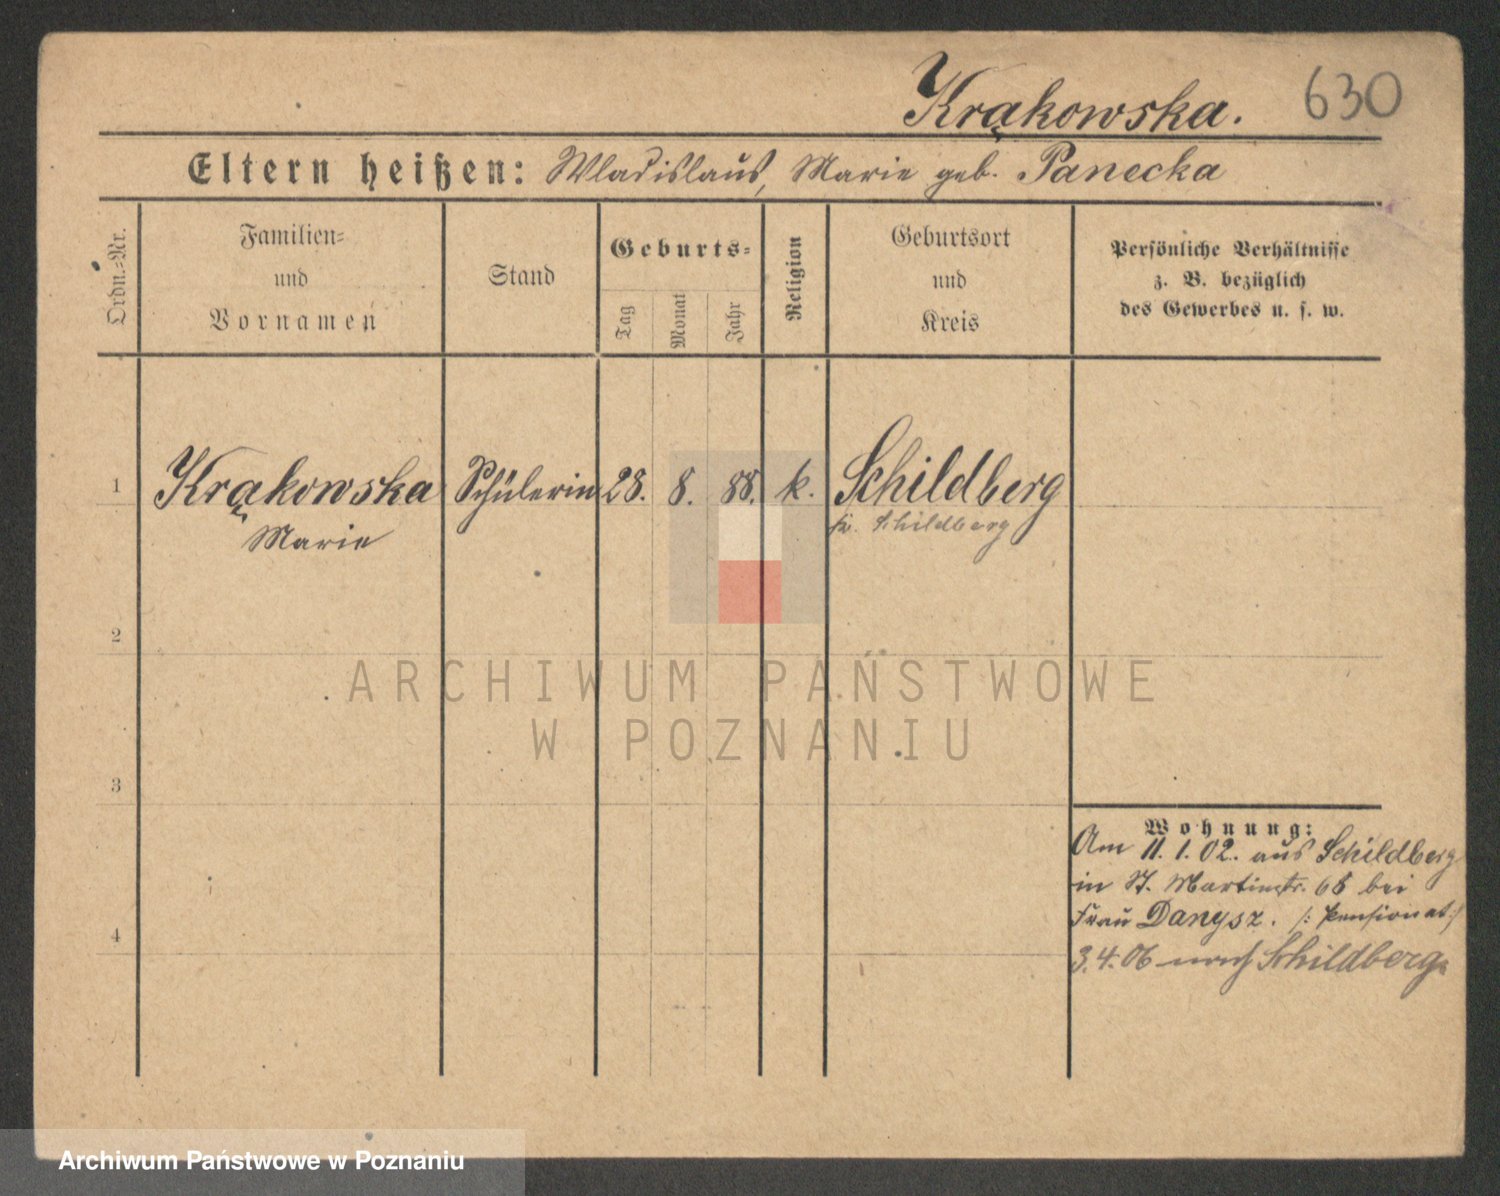 Krąkowska. 630
Eltern heißen: Wladislaus, Marie geb. Panecka
Ordn.-Nr.
Familien-
und
Vornamen
Stand
Geburts-
Tag
Monat
Jahr
Religion
Geburtsort
und
Kreis
Persönliche Verhältnisse
z. B. bezüglich
des Gewerbes u. s. w.
1 Krąkowska Schülerin 28. 8. 88. k. Schildberg
Marie Kr. Schildberg
2
ARCHIWUM PAŃSTWOWE
W POZNANIU
3
Wohnung:
Am 11.1.02. aus Schildberg
in St. Martinstr. 68 bei
Frau Danysz. /: Pensionat :/
4
3.4.06 nach Schildberg.
Archiwum Państwowe w Poznaniu